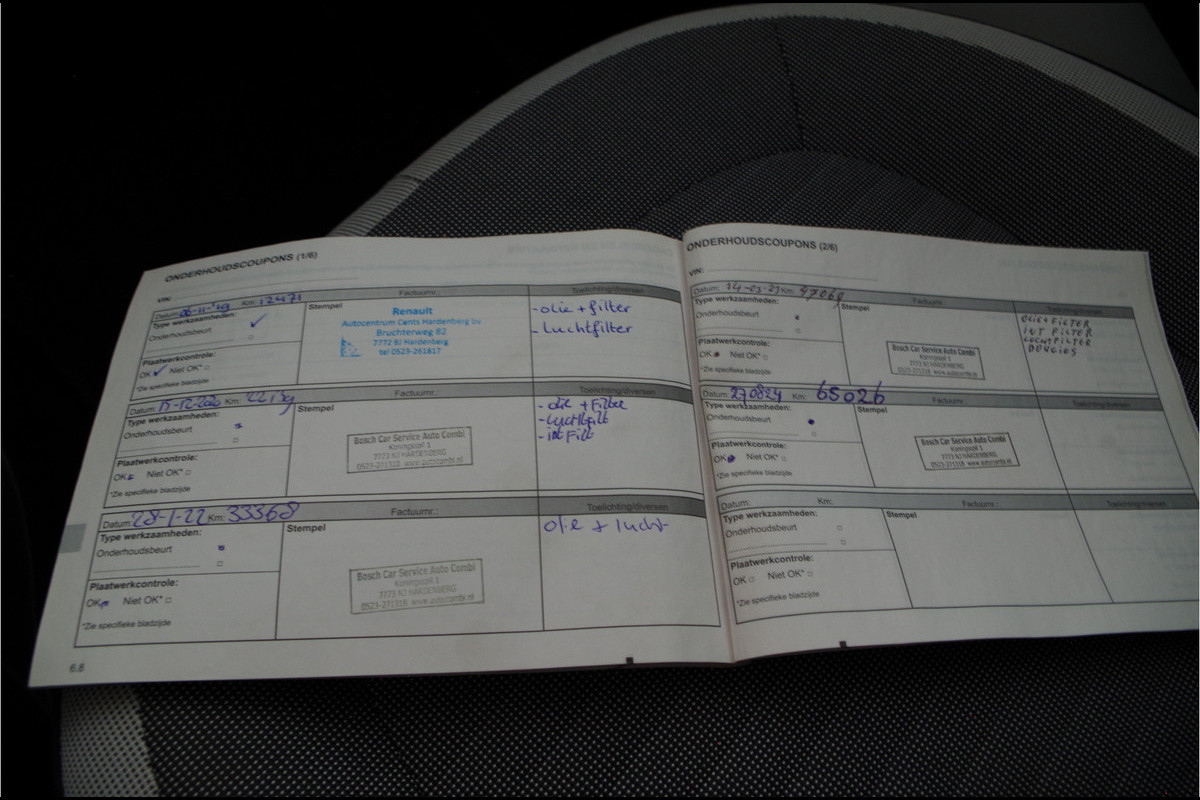 ONDERHOUDSCOUPONS (1/6)
VIN:
Datum: 06-11-'19 Km: 12471 Factuurnr.: Toelichting/diversen
Type werkzaamheden: Stempel
Onderhoudsbeurt
Plaatwerkcontrole:
OK Niet OK*
*Zie specifieke bladzijde
Renault
Autocentrum Cents Hardenberg bv
Bruchterweg 82
7772 BJ Hardenberg
tel 0523-261817
- olie + filter
- luchtfilter
Datum: 15-12-2020 Km: Factuurnr.: Toelichting/diversen
Type werkzaamheden: Stempel
Onderhoudsbeurt
Plaatwerkcontrole:
OK Niet OK*
*Zie specifieke bladzijde
Bosch Car Service Auto Combi
Koningsspil 1
7773 NJ HARDENBERG
0523-271318 www.autocombi.nl
- olie + Filter
- luchtfilt
- int Filt
Datum: 28-1-22 Km: 33368 Factuurnr.: Toelichting/diversen
Type werkzaamheden: Stempel
Onderhoudsbeurt
Plaatwerkcontrole:
OK Niet OK*
*Zie specifieke bladzijde
Bosch Car Service Auto Combi
Koningsspil 1
7773 NJ HARDENBERG
0523-271318 www.autocombi.nl
olie + lucht
6.8
ONDERHOUDSCOUPONS (2/6)
VIN:
Datum: 14-03-23 Km: 47068 Factuurnr.: Toelichting/diversen
Type werkzaamheden: Stempel
Onderhoudsbeurt
Plaatwerkcontrole:
OK Niet OK*
*Zie specifieke bladzijde
Bosch Car Service Auto Combi
Koningsspil 1
7773 NJ HARDENBERG
0523-271318 www.autocombi.nl
OLIE+FILTER
INT FILTER
LUCHTFILTER
Datum: 270824 Km: 65026 Factuurnr.: Toelichting/diversen
Type werkzaamheden: Stempel
Onderhoudsbeurt
Plaatwerkcontrole:
OK Niet OK*
*Zie specifieke bladzijde
Bosch Car Service Auto Combi
Koningsspil 1
7773 NJ HARDENBERG
0523-271318 www.autocombi.nl
Datum: Km: Factuurnr.: Toelichting/diversen
Type werkzaamheden: Stempel
Onderhoudsbeurt
Plaatwerkcontrole:
OK Niet OK*
*Zie specifieke bladzijde